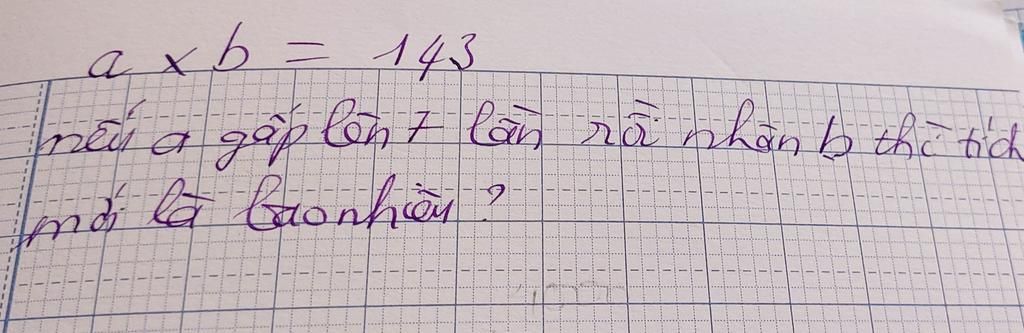 a x b = 143
nếu a gấp lên 7 lần rồi nhân b thì tích
mới là bao nhiêu?